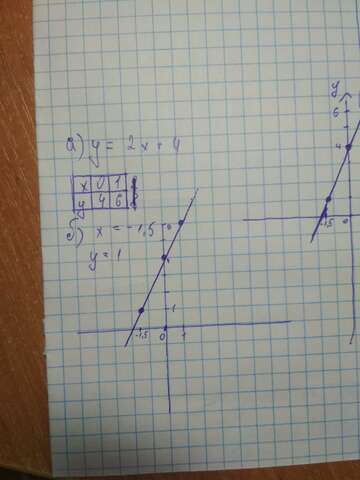 а) y = 2x + 4
x 0 1
y 4 6
б) x = -1,5
y = 1
6
4
1
-1,5 0 1
y
6
4
-1,5 0